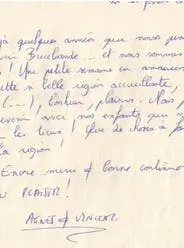 jà quelques années que nous
Brocéliande ... et nous sommes
! Une petite semaine en amoureux
cette si belle région accueillante,
(...), bonheur, plaisir. Nous
revenir avec nos enfants
les lieux ! Que de choses à
la région !
Encore merci & bonne
PLAISIR !
AGNÈS & VINCENT